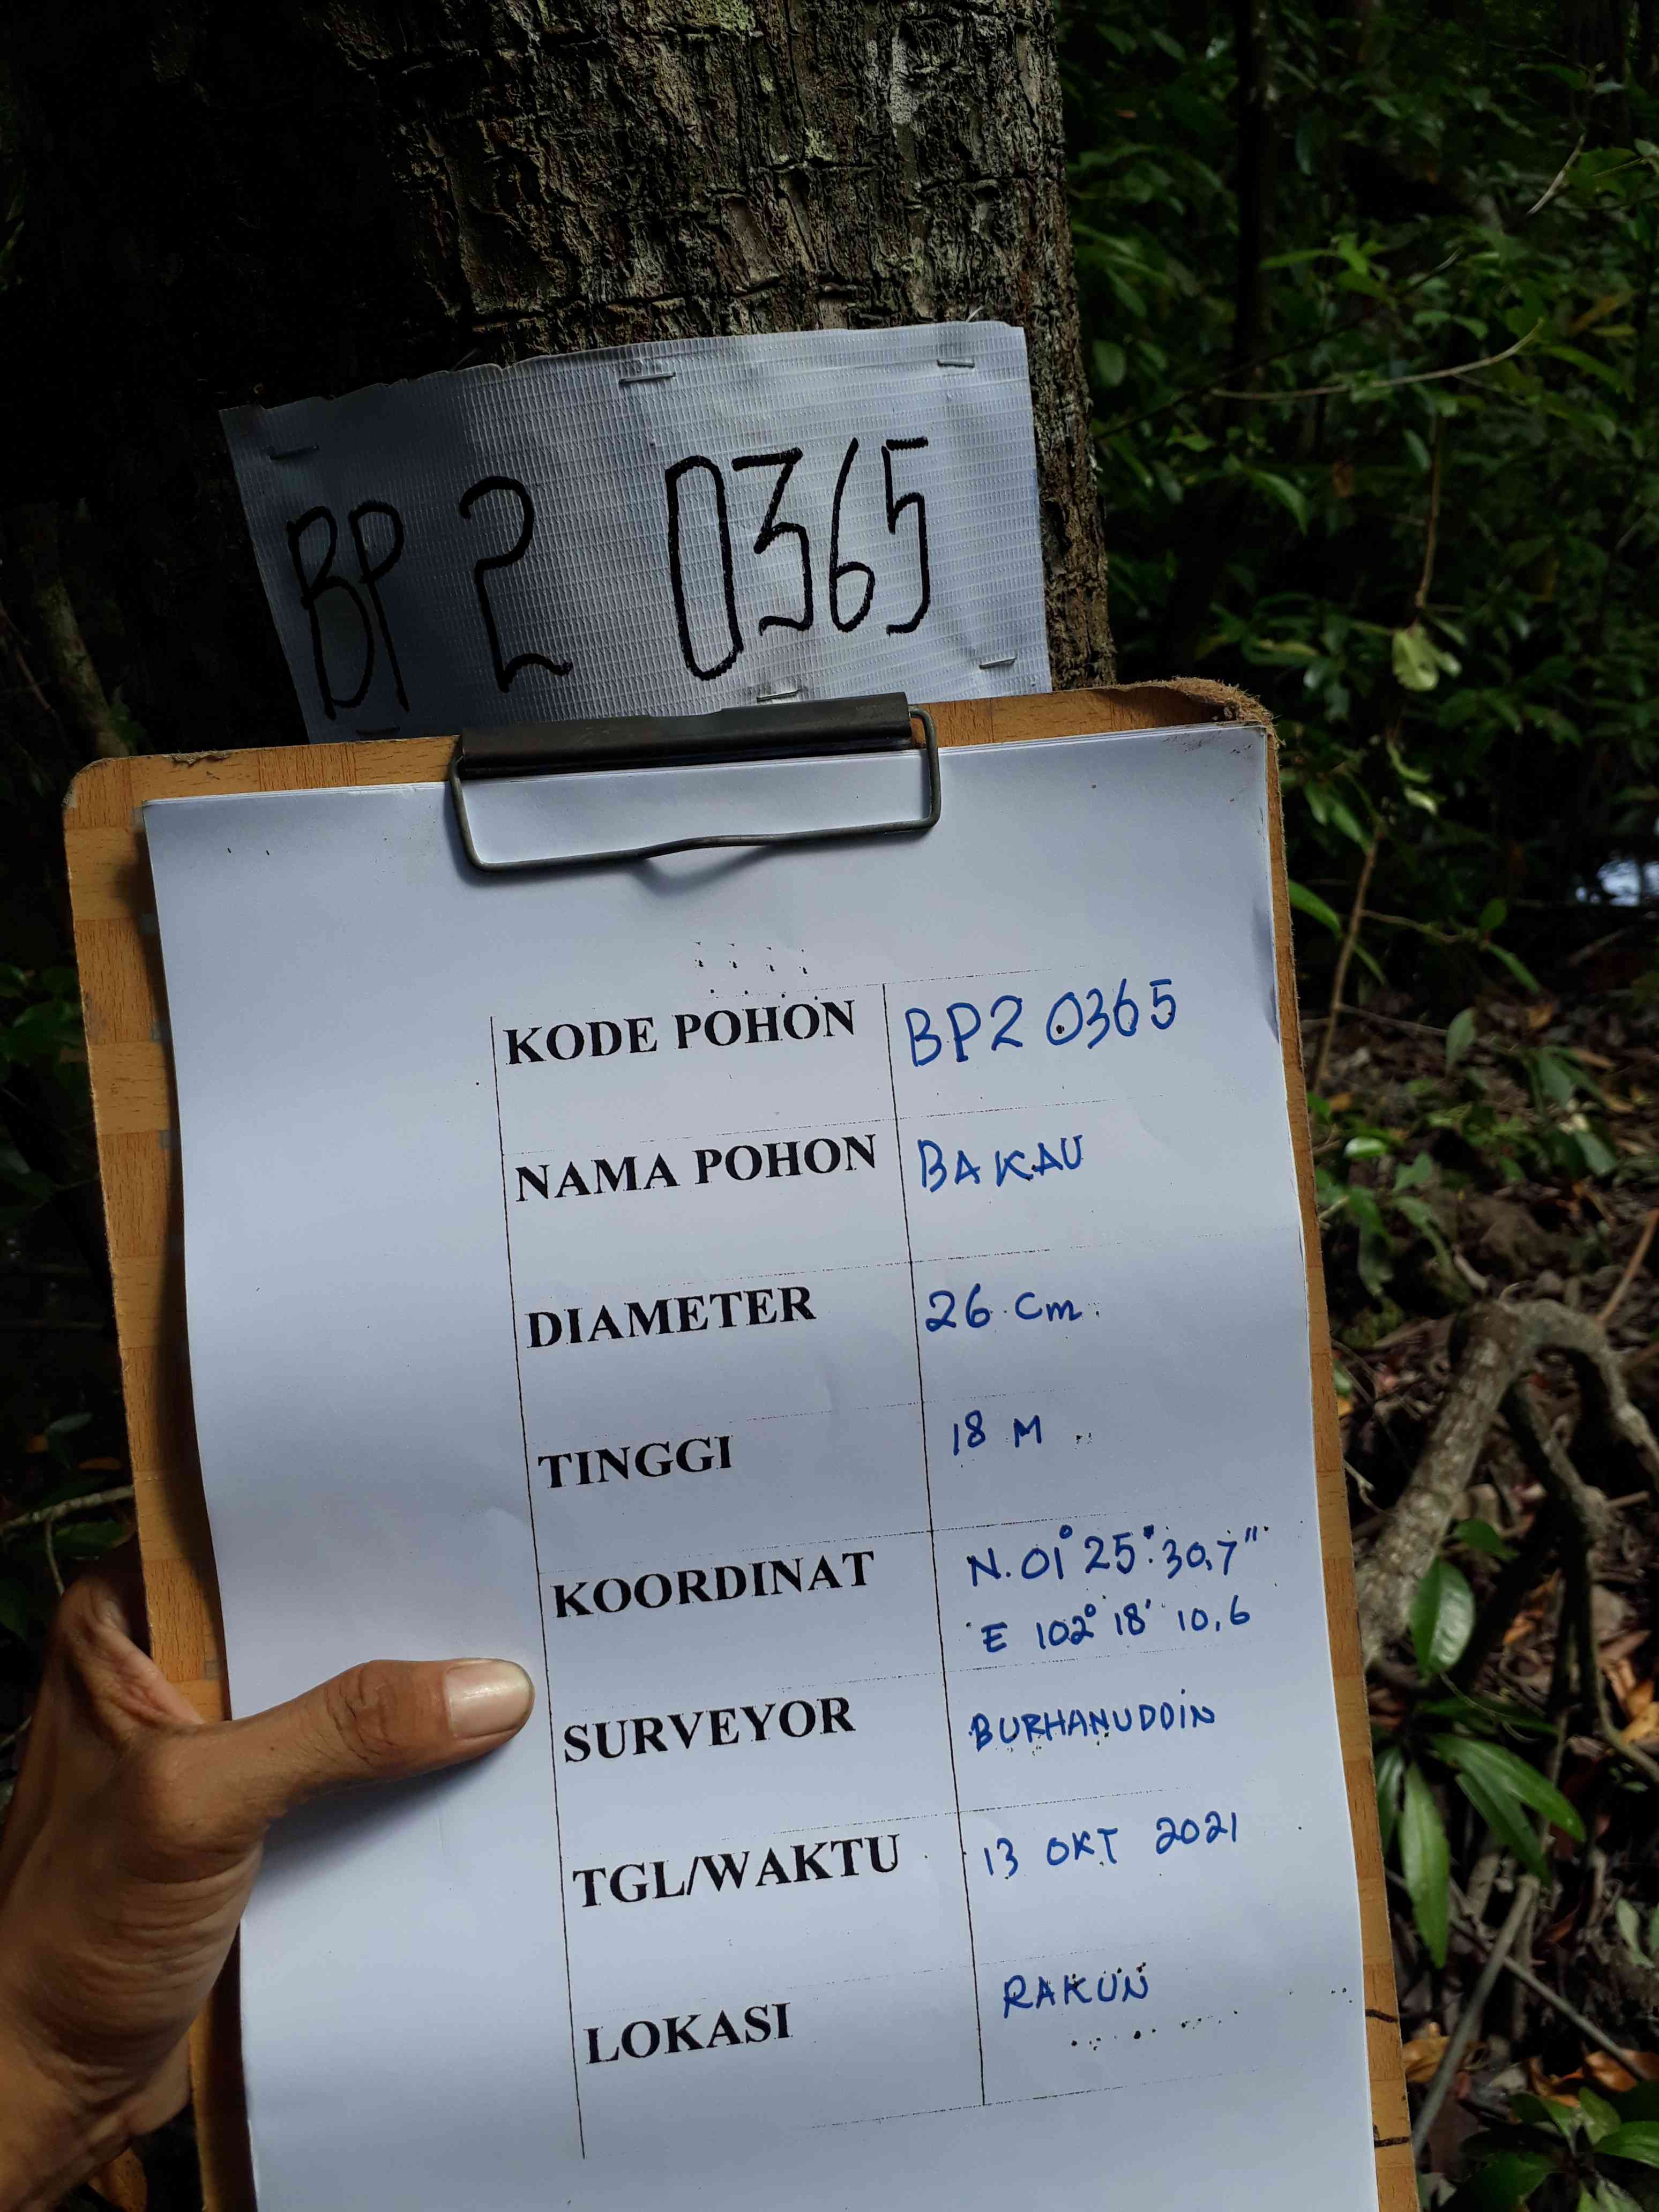 BP 2 0365
KODE POHON BP2 0365
NAMA POHON BAKAU
DIAMETER 26 Cm.
TINGGI 18 M
KOORDINAT N. 01° 25' 30,7"
E 102° 18' 10,6
SURVEYOR BURHANUDDIN
TGL/WAKTU 13 OKT 2021
LOKASI RAKUN